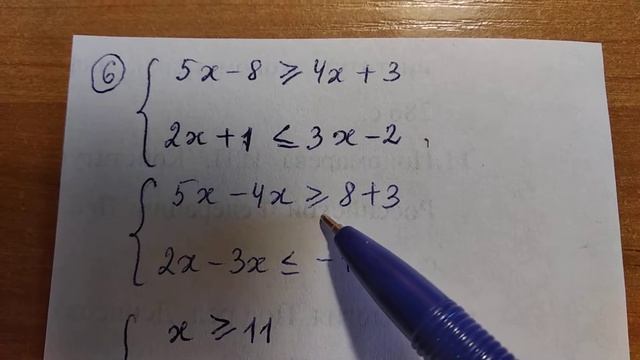 6 5x - 8 ≥ 4x + 3
2x + 1 ≤ 3x - 2,
5x - 4x ≥ 8 + 3
2x - 3x ≤ -
x ≥ 11